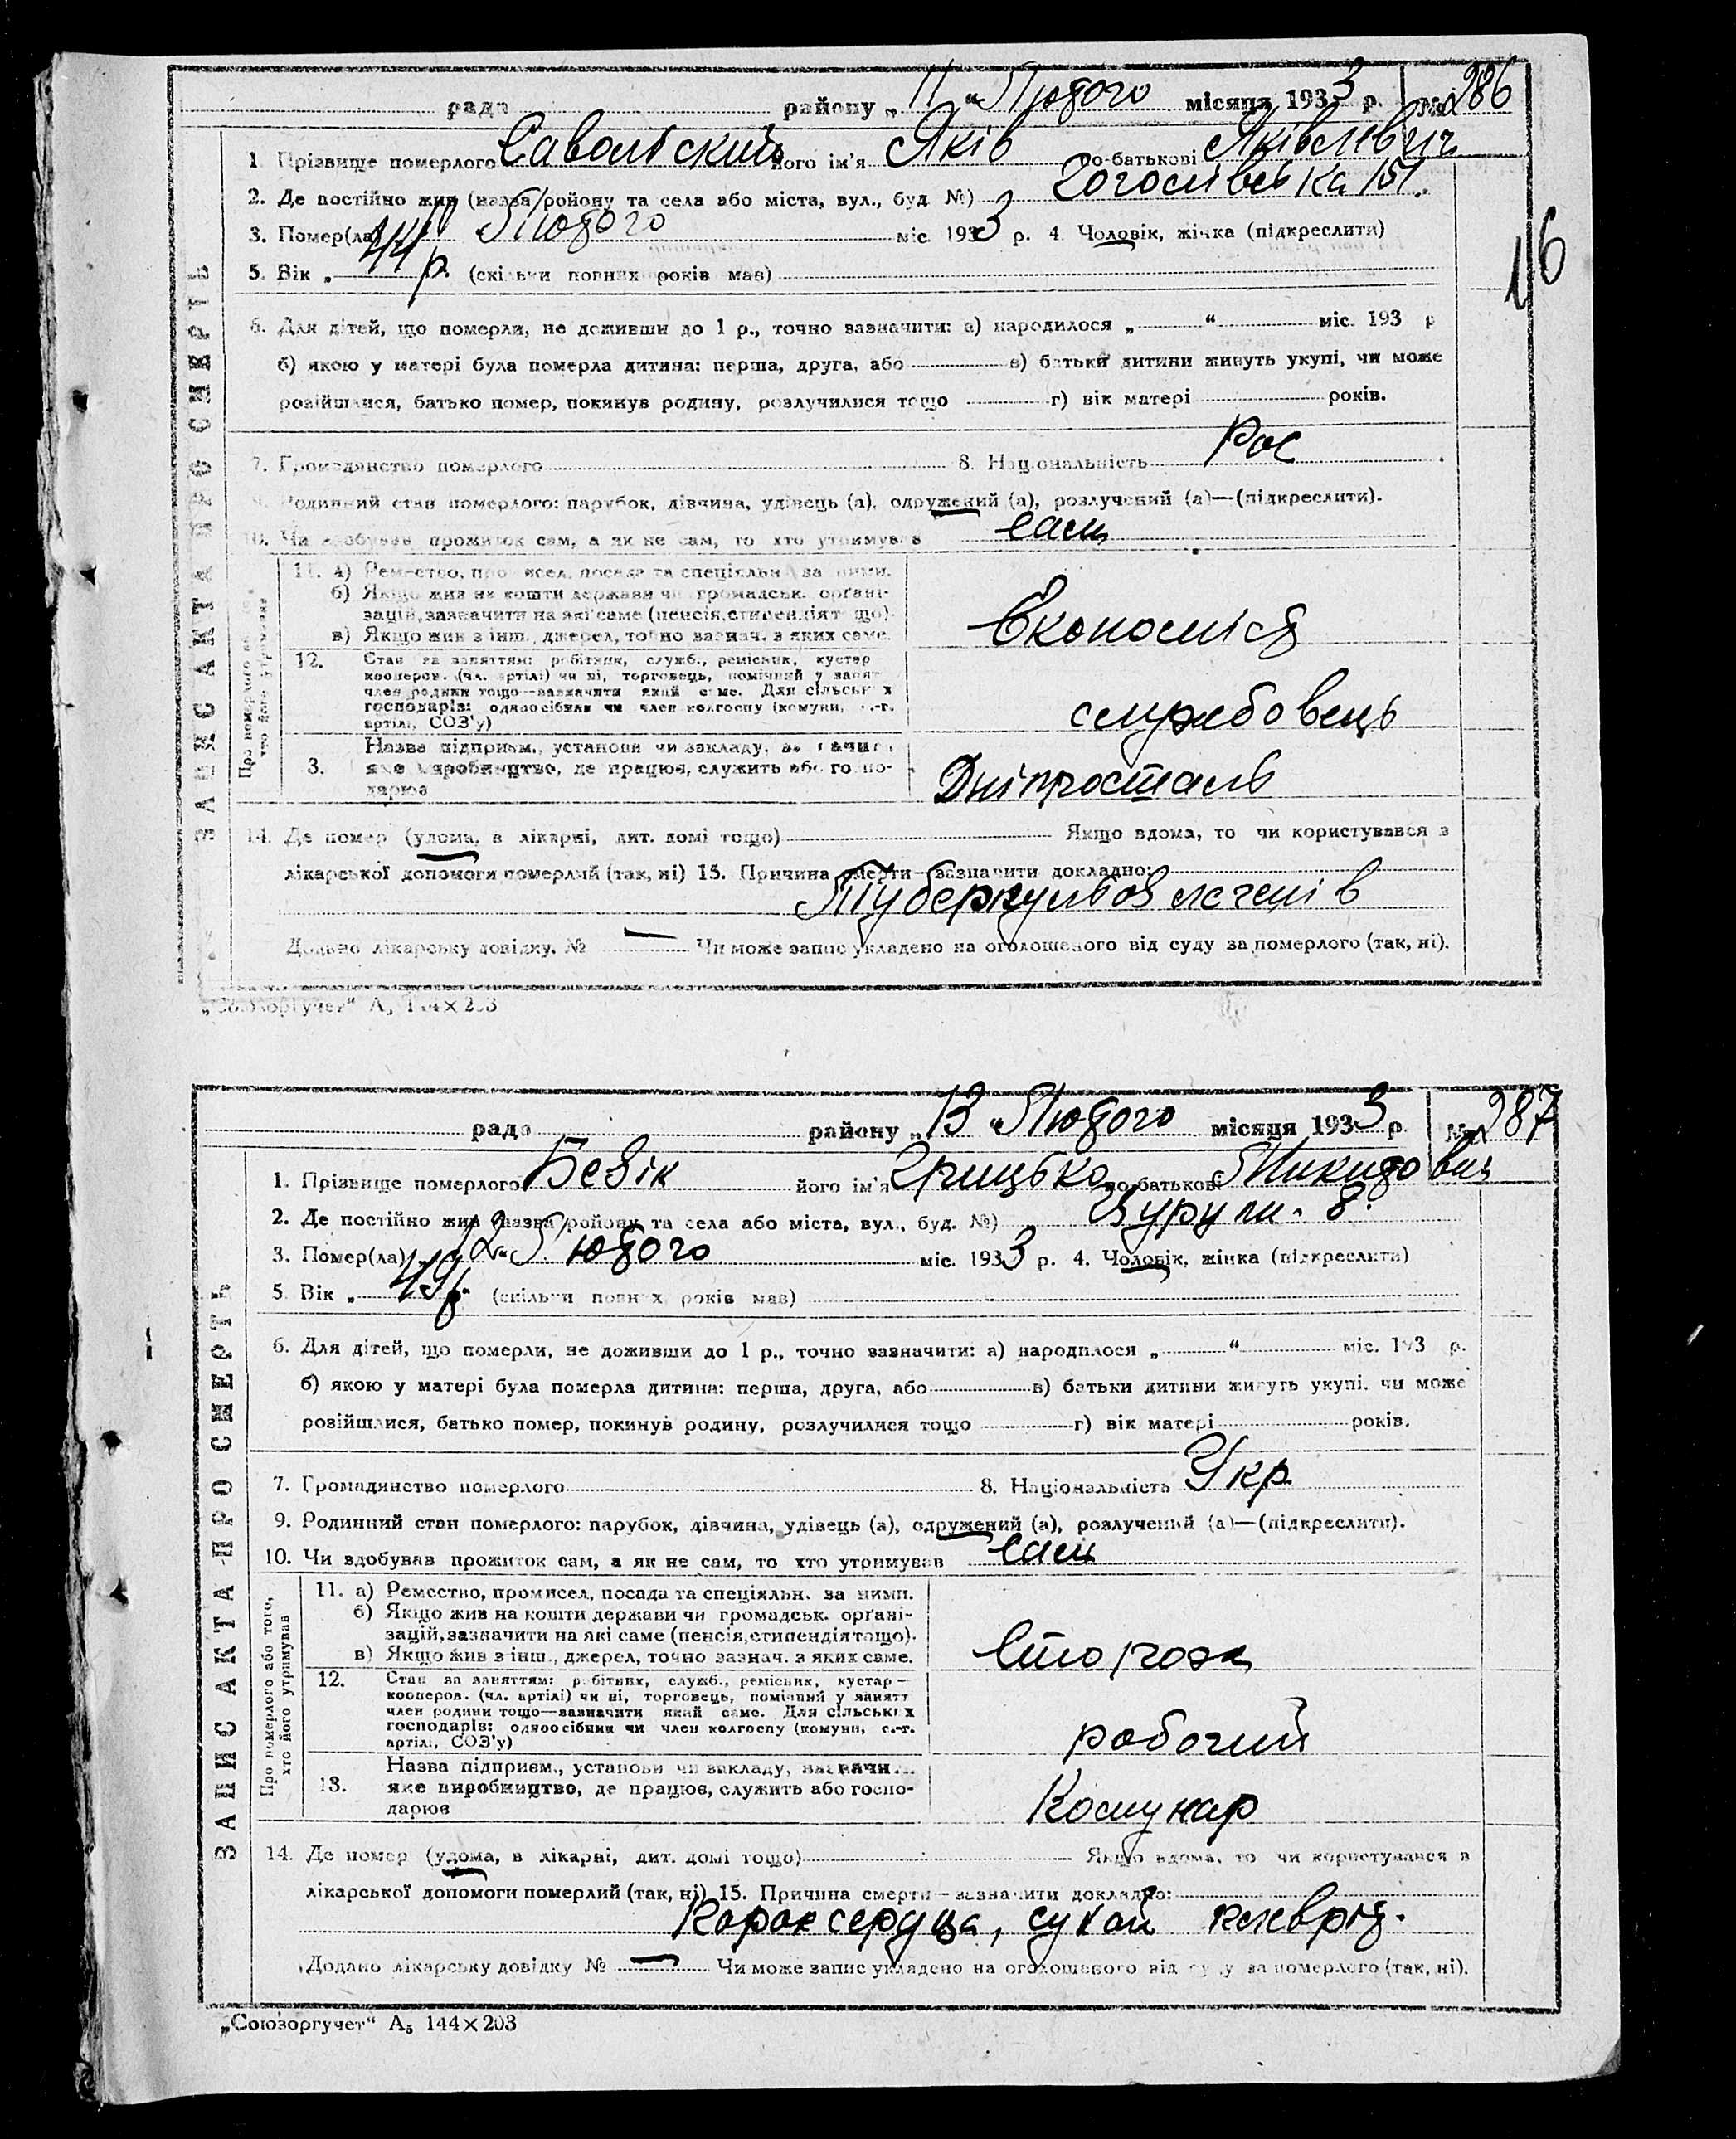 рада району „ 11 “ Лютого місяця 1933 р. № 286
1. Прізвище померлого Савольский його ім'я Яків по-батькові Яківлевич
2. Де постійно жив (назва району та села або міста, вул., буд №) 151.
3. Помер(ла) Лютого міс. 1933 р. 4. Чоловік, жінка (підкреслити)
16
5. Вік „ 44 р. (скільки повних років мав)
6. Для дітей, що померли, не доживши до 1 р., точно зазначити: а) народилося „ “ міс. 193 р
б) якою у матері була померла дитина: перша, друга, або в) батьки дитини живуть укупі, чи може
розійшлися, батько помер, покинув родину, розлучилися тощо г) вік матері років.
7. Громадянство померлого 8. Національність Рос
9. Родинний стан померлого: парубок, дівчина, удівець (а), одружений (а), розлучений (а)—(підкреслити).
10. Чи здобував прожиток сам, а як не сам, то хто утримував сам
ЗАПИС АКТА ПРО СМЕРТЬ
Про померлого або того, хто його утримував
11. а) Ремество, промисел, посада та спеціяльн. за ними.
б) Якщо жив на кошти держави чи громадськ. орґані-
зацій, зазначити на які саме (пенсія, стипендія тощо).
в) Якщо жив з інш., джерел, точно зазнач. з яких саме.
Економіст
12. Стан за заняттям: робітник, служб., ремісник, кустар
кооперов. (чл. артілі) чи ні, торговець, помічний у занят
член родини тощо—зазначити який саме. Для сільських
господарів: одноосібник чи член колгоспу (комуни, с.-г.
артілі, СОЗ'у)
службовець
13. Назва підприєм., установи чи закладу, зазначити
яке виробництво, де працює, служить або госпо-
дарює
Дніпросталь
14. Де помер (удома, в лікарні, дит. домі тощо) Якщо вдома, то чи користувався з
лікарської допомоги померлий (так, ні) 15. Причина смерти—зазначити докладно:
Туберкульоз легенів
Додано лікарську довідку № — Чи може запис укладено на оголошеного від суду за померлого (так, ні).
„Союзоргучет“ А₅ 144×203
рада району „ 13 “ Лютого місяця 1933 р. № 287
1. Прізвище померлого Безік його ім'я Грицько по-батькові Микитович
2. Де постійно жив (назва району та села або міста, вул., буд. №) Цурупи. 8.
3. Помер(ла) „ 12 “ Лютого міс. 1933 р. 4. Чоловік, жінка (підкреслити)
5. Вік „ 49 р. (скільки повних років мав)
6. Для дітей, що померли, не доживши до 1 р., точно зазначити: а) народилося „ “ міс. 193 р.
б) якою у матері була померла дитина: перша, друга, або в) батьки дитини живуть укупі, чи може
розійшлися, батько помер, покинув родину, розлучилися тощо г) вік матері років.
7. Громадянство померлого 8. Національність Укр
9. Родинний стан померлого: парубок, дівчина, удівець (а), одружений (а), розлучений (а)—(підкреслити).
10. Чи здобував прожиток сам, а як не сам, то хто утримував сам
ЗАПИС АКТА ПРО СМЕРТЬ
Про померлого або того, хто його утримував
11. а) Ремество, промисел, посада та спеціяльн. за ними.
б) Якщо жив на кошти держави чи громадськ. орґані-
зацій, зазначити на які саме (пенсія, стипендія тощо).
в) Якщо жив з інш., джерел, точно зазнач. з яких саме.
Сторож
12. Стан за заняттям: робітник, служб., ремісник, кустар—
кооперов. (чл. артілі) чи ні, торговець, помічний у занятт
член родини тощо—зазначити який саме. Для сільських
господарів: одноосібник чи член колгоспу (комуни, с.-г.
артілі, СОЗ'у)
робочий
13. Назва підприєм., установи чи закладу, зазначити
яке виробництво, де працює, служить або госпо-
дарює
Комунар
14. Де помер (удома, в лікарні, дит. домі тощо) Якщо вдома, то чи користувався з
лікарської допомоги померлий (так, ні) 15. Причина смерти—зазначити докладно:
Порок сердца, сухой плеврит.
Додано лікарську довідку № — Чи може запис укладено на оголошеного від суду за померлого (так, ні).
„Союзоргучет“ А₅ 144×203